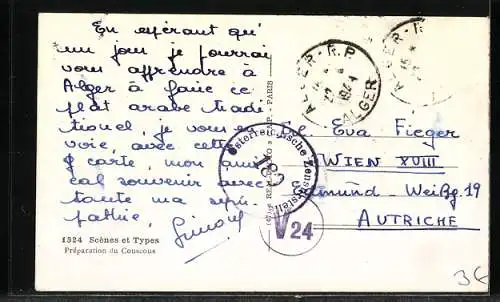 En espérant qu'
un jour je pourrai
vous apprendre à
Alger à faire ce
plat arabe tradi
tionel, je vous en
voie, avec cette
carte, mon ami
cal souvenir avec
toute ma sym-
pathie,
1324 Scènes et Types
Préparation du Couscous
PARIS
ALGER - R.P.
ALGER
ALGER - R
Österreichische Zensurstelle
182
V 24
Eva Fieger
WIEN XVIII
Edmund Weißg. 19
AUTRICHE
3€